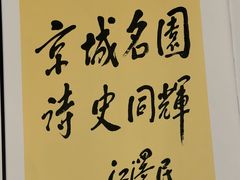 京城名園
诗史同輝
江澤民